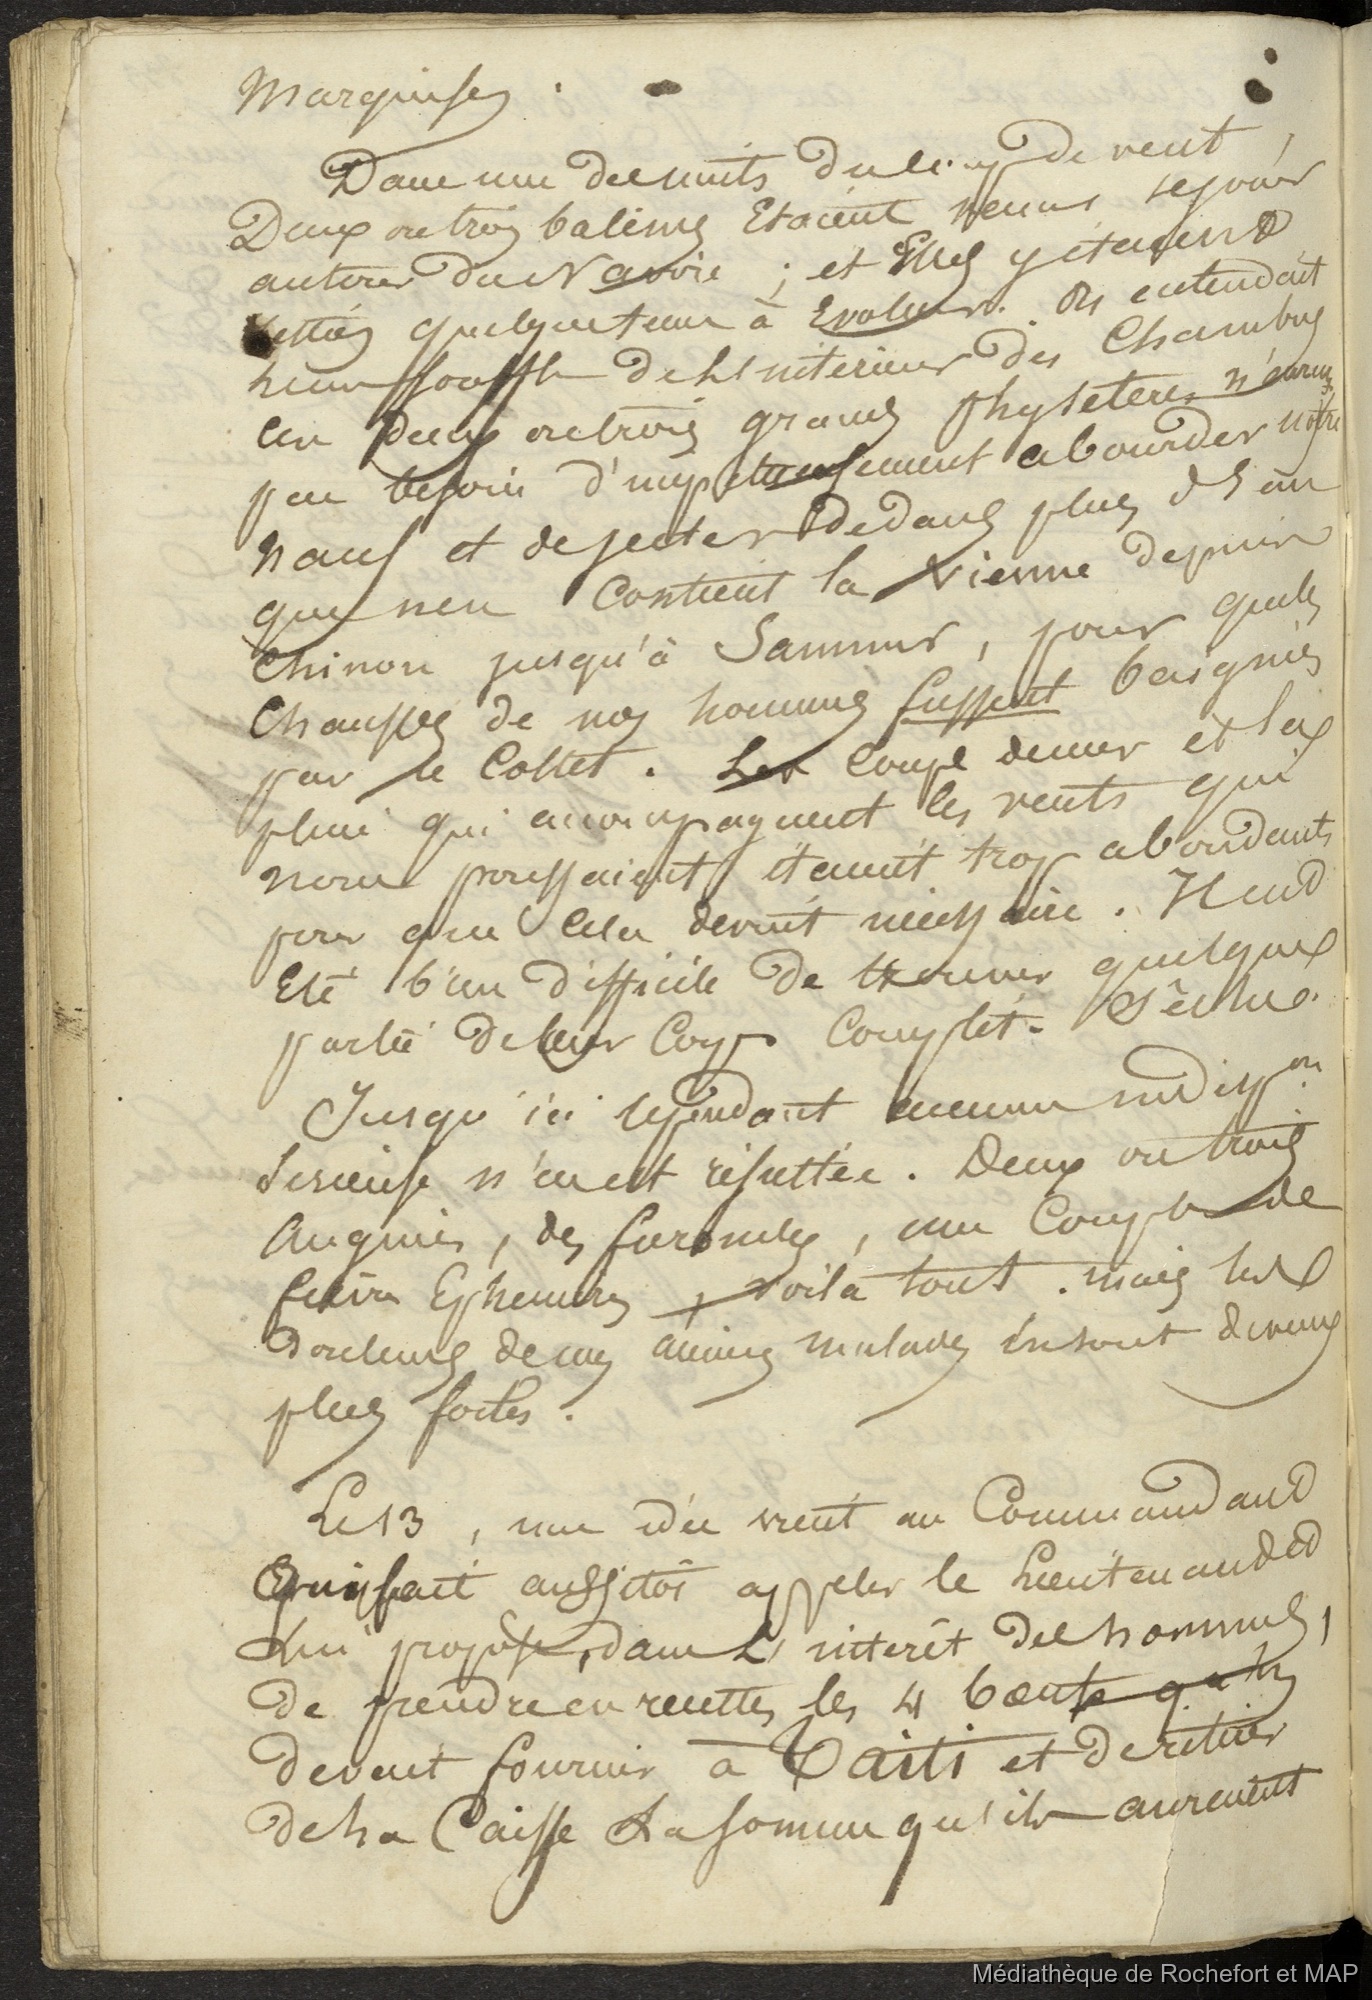 Marquises.
Dans une des nuits du coup de vent,
Deux ou trois baleines Etaient venues se jouer
autour du Navire ; et Elles y étaient
restées quelque tems à Evoluer. On entendait
leur souffle de l'interieur des Chambres
Ces Deux ou trois grands physetères n'eurent
pas besoin d'impetueusement abourder notre
nauf et de jecter dedans plus d'eau
que n'en Contient la Vienne depuis
Chinon jusqu'à Saumur, pour que les
Chausses de nos hommes fussent baignées
par le Collet. Les Coups de mer et la
pluie qui accompagnent les vents qui
nous poussaient étaient trop abondants
pour que cela devint nécessaire. Il eut
Eté bien difficile de trouver quelque
partie de leur Corps Complèt. Sèche.
Jusqu'ici cependant aucune indispon
Serieuse n'en est résultée. Deux ou trois
Angines, des furoncles, une Couple de
fièvres Ephemères, voilà tout. mais les
Douleurs de mes anciens malades en sont devenues
plus fortes.
Le 13, une idée vient au Commandant
Qui fait aussitôt appeler le Lieutenant et
Lui propose, dans L'interêt des hommes,
de prendre en recettes les 4 bœufs qu'ils
devait fournir à Taïti et de retirer
de la Caisse La somme qu'ils auraient